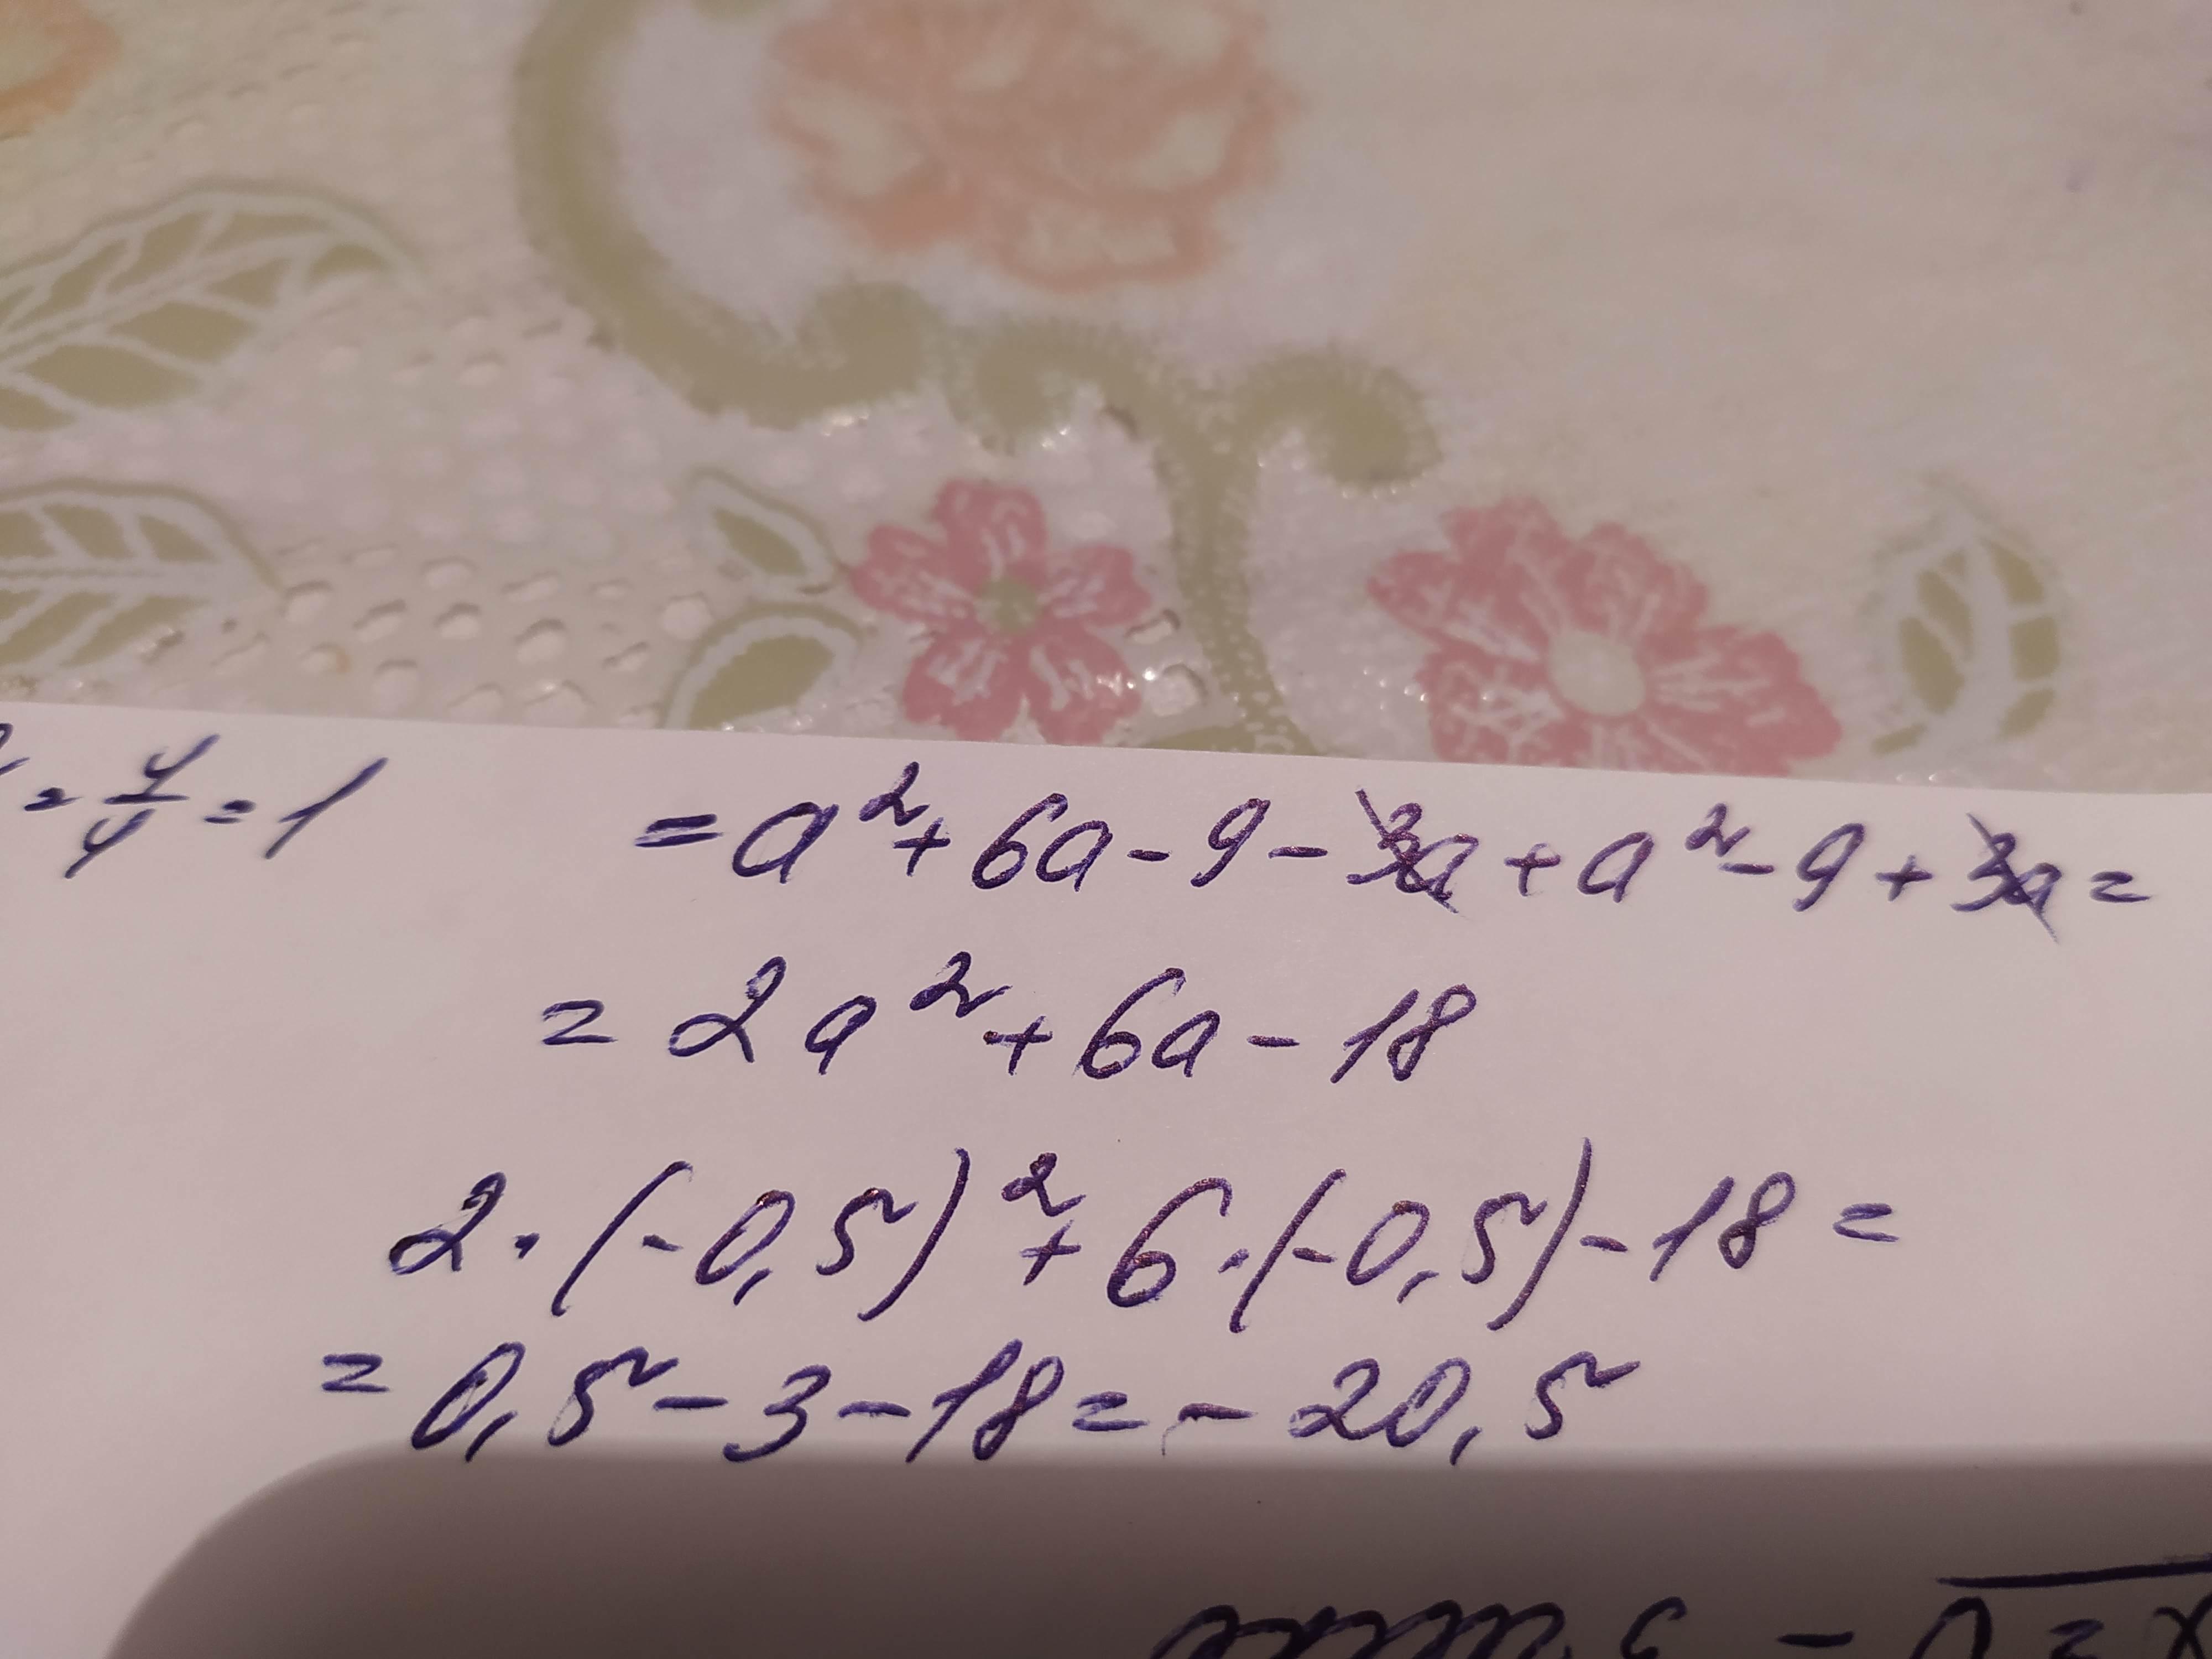 = 4/4 = 1
= a² + 6a - 9 - 3a + a² - 9 + 3a =
= 2a² + 6a - 18
2 · (-0,5)² + 6 · (-0,5) - 18 =
= 0,5 - 3 - 18 = - 20,5